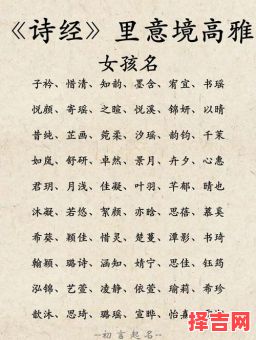 《诗经》里意境高雅
女孩名
子衿、惜清、知韵、墨含、宥宜、书瑶
悦颜、寄瑶、之暄、悦溪、锦妍、以晴
昔纯、芷画、莞柔、沙瑶、韵钧、千茉
如岚、舒研、卓然、景月、卉夕、心惠
君玥、月浅、佳凝、叶羽、芊郁、晴也
沐凝、若悠、絮颜、亦晗、思蓓、慕奚
希葵、颖佳、惜灵、楚蔓、潭影、书琦
翰颖、璐诗、涵知、婧宁、思佳、钰筠
泓锦、艺萱、凌静、依萱、瑜莉、希珍
歆沐、思琦、璐瑶、宣晔、怡熹
--初言起名--
择吉网